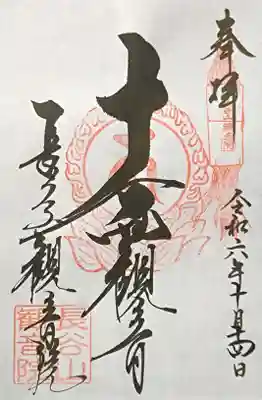 奉拝
令和六年十月十四日
十一面観世音
長谷山観音院
長谷山
観音院